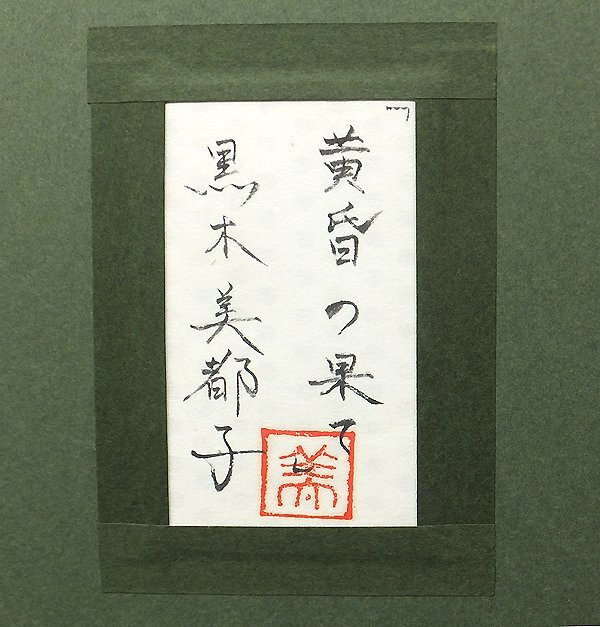 黄昏の果て
黒木美都子
美